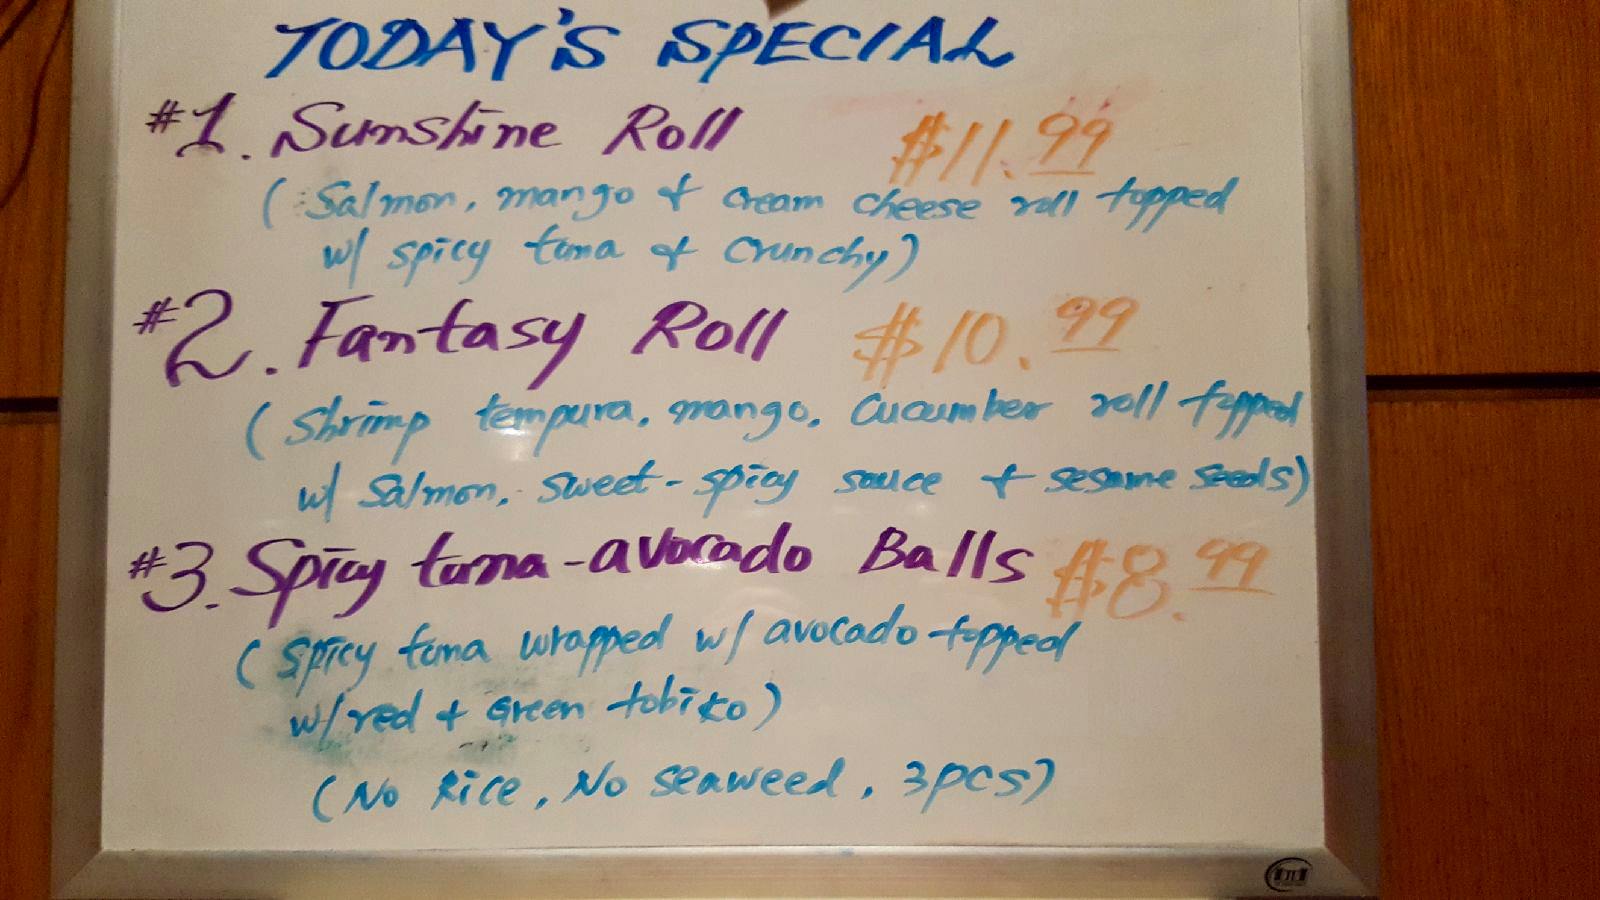 TODAY'S SPECIAL
#1. Sunshine Roll $11.99
(Salmon, mango + cream cheese roll topped
w/ spicy tuna + crunchy)
#2. Fantasy Roll $10.99
(Shrimp tempura, mango, cucumber roll topped
w/ salmon, sweet-spicy sauce + sesame seeds)
#3. Spicy tuna-avocado Balls $8.99
(spicy tuna wrapped w/ avocado topped
w/ red + Green tobiko)
(No Rice, No seaweed, 3pcs)